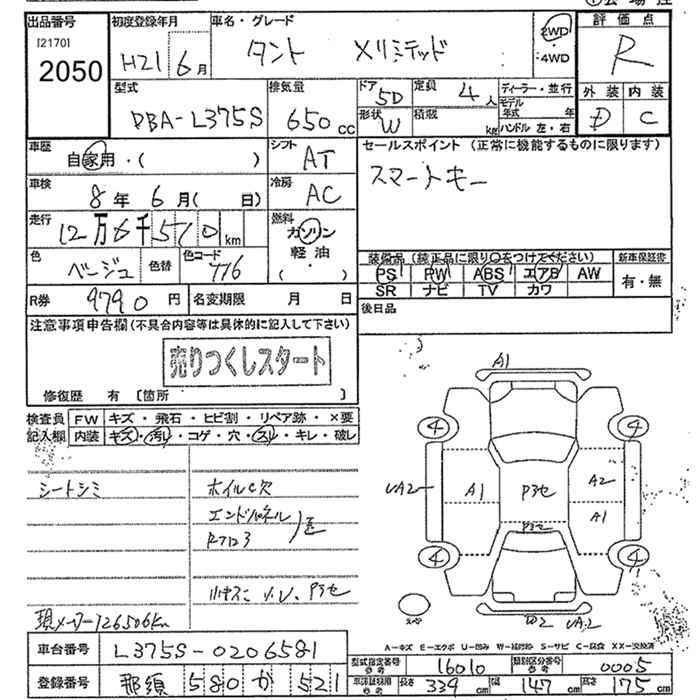 出品番号 初度登録年月 車名・グレード 評価点
[2170]
2050 H21 6月 タント Xリミテッド 2WD ・4WD R
型式 排気量 ドア 定員 ディーラー・並行 外装 内装
DBA-L375S 650cc 5D 4人 モデル年式 年 D C
形状 W 積載 kg ハンドル 左・右
車歴 自家用・( ) シフト AT セールスポイント (正常に機能するものに限ります)
車検 8年6月( 日) 冷房 AC スマートキー
走行 12万6千510km 燃料 ガソリン 軽油 ( )
色 ベージュ 色替 色コード T16
装備品 (純正品に限り○をつけてください) 新車保証書
PS PW ABS エアB AW 有・無
SR ナビ TV カワ
R券 9790円 名変期限 月 日 後日品
注意事項申告欄(不具合内容等は具体的に記入して下さい)
売りつくしスタート
修復歴 有 [箇所 ]
検査員 FW キズ・飛石・ヒビ割・リペア跡・×要
記入欄 内装 キズ・汚れ・コゲ・穴・スレ・キレ・破レ
シートシミ ホイルC欠
エンドパネル
Rフロア
現メーター126506Km
A1
4 4
UA2 A1 Pヌセ A2
A1
Pヌセ
4 4
スペア W2 UA2
A=キズ E=エクボ U=凹み W=補修跡 S=サビ C=腐食 XX=交換済
車台番号 L375S-0206581
型式指定番号 参考 16010 類別区分番号 参考 0005
登録番号 那須 580 か 521
車検証記載 参考 長さ 339cm 幅 147cm 高さ 175cm